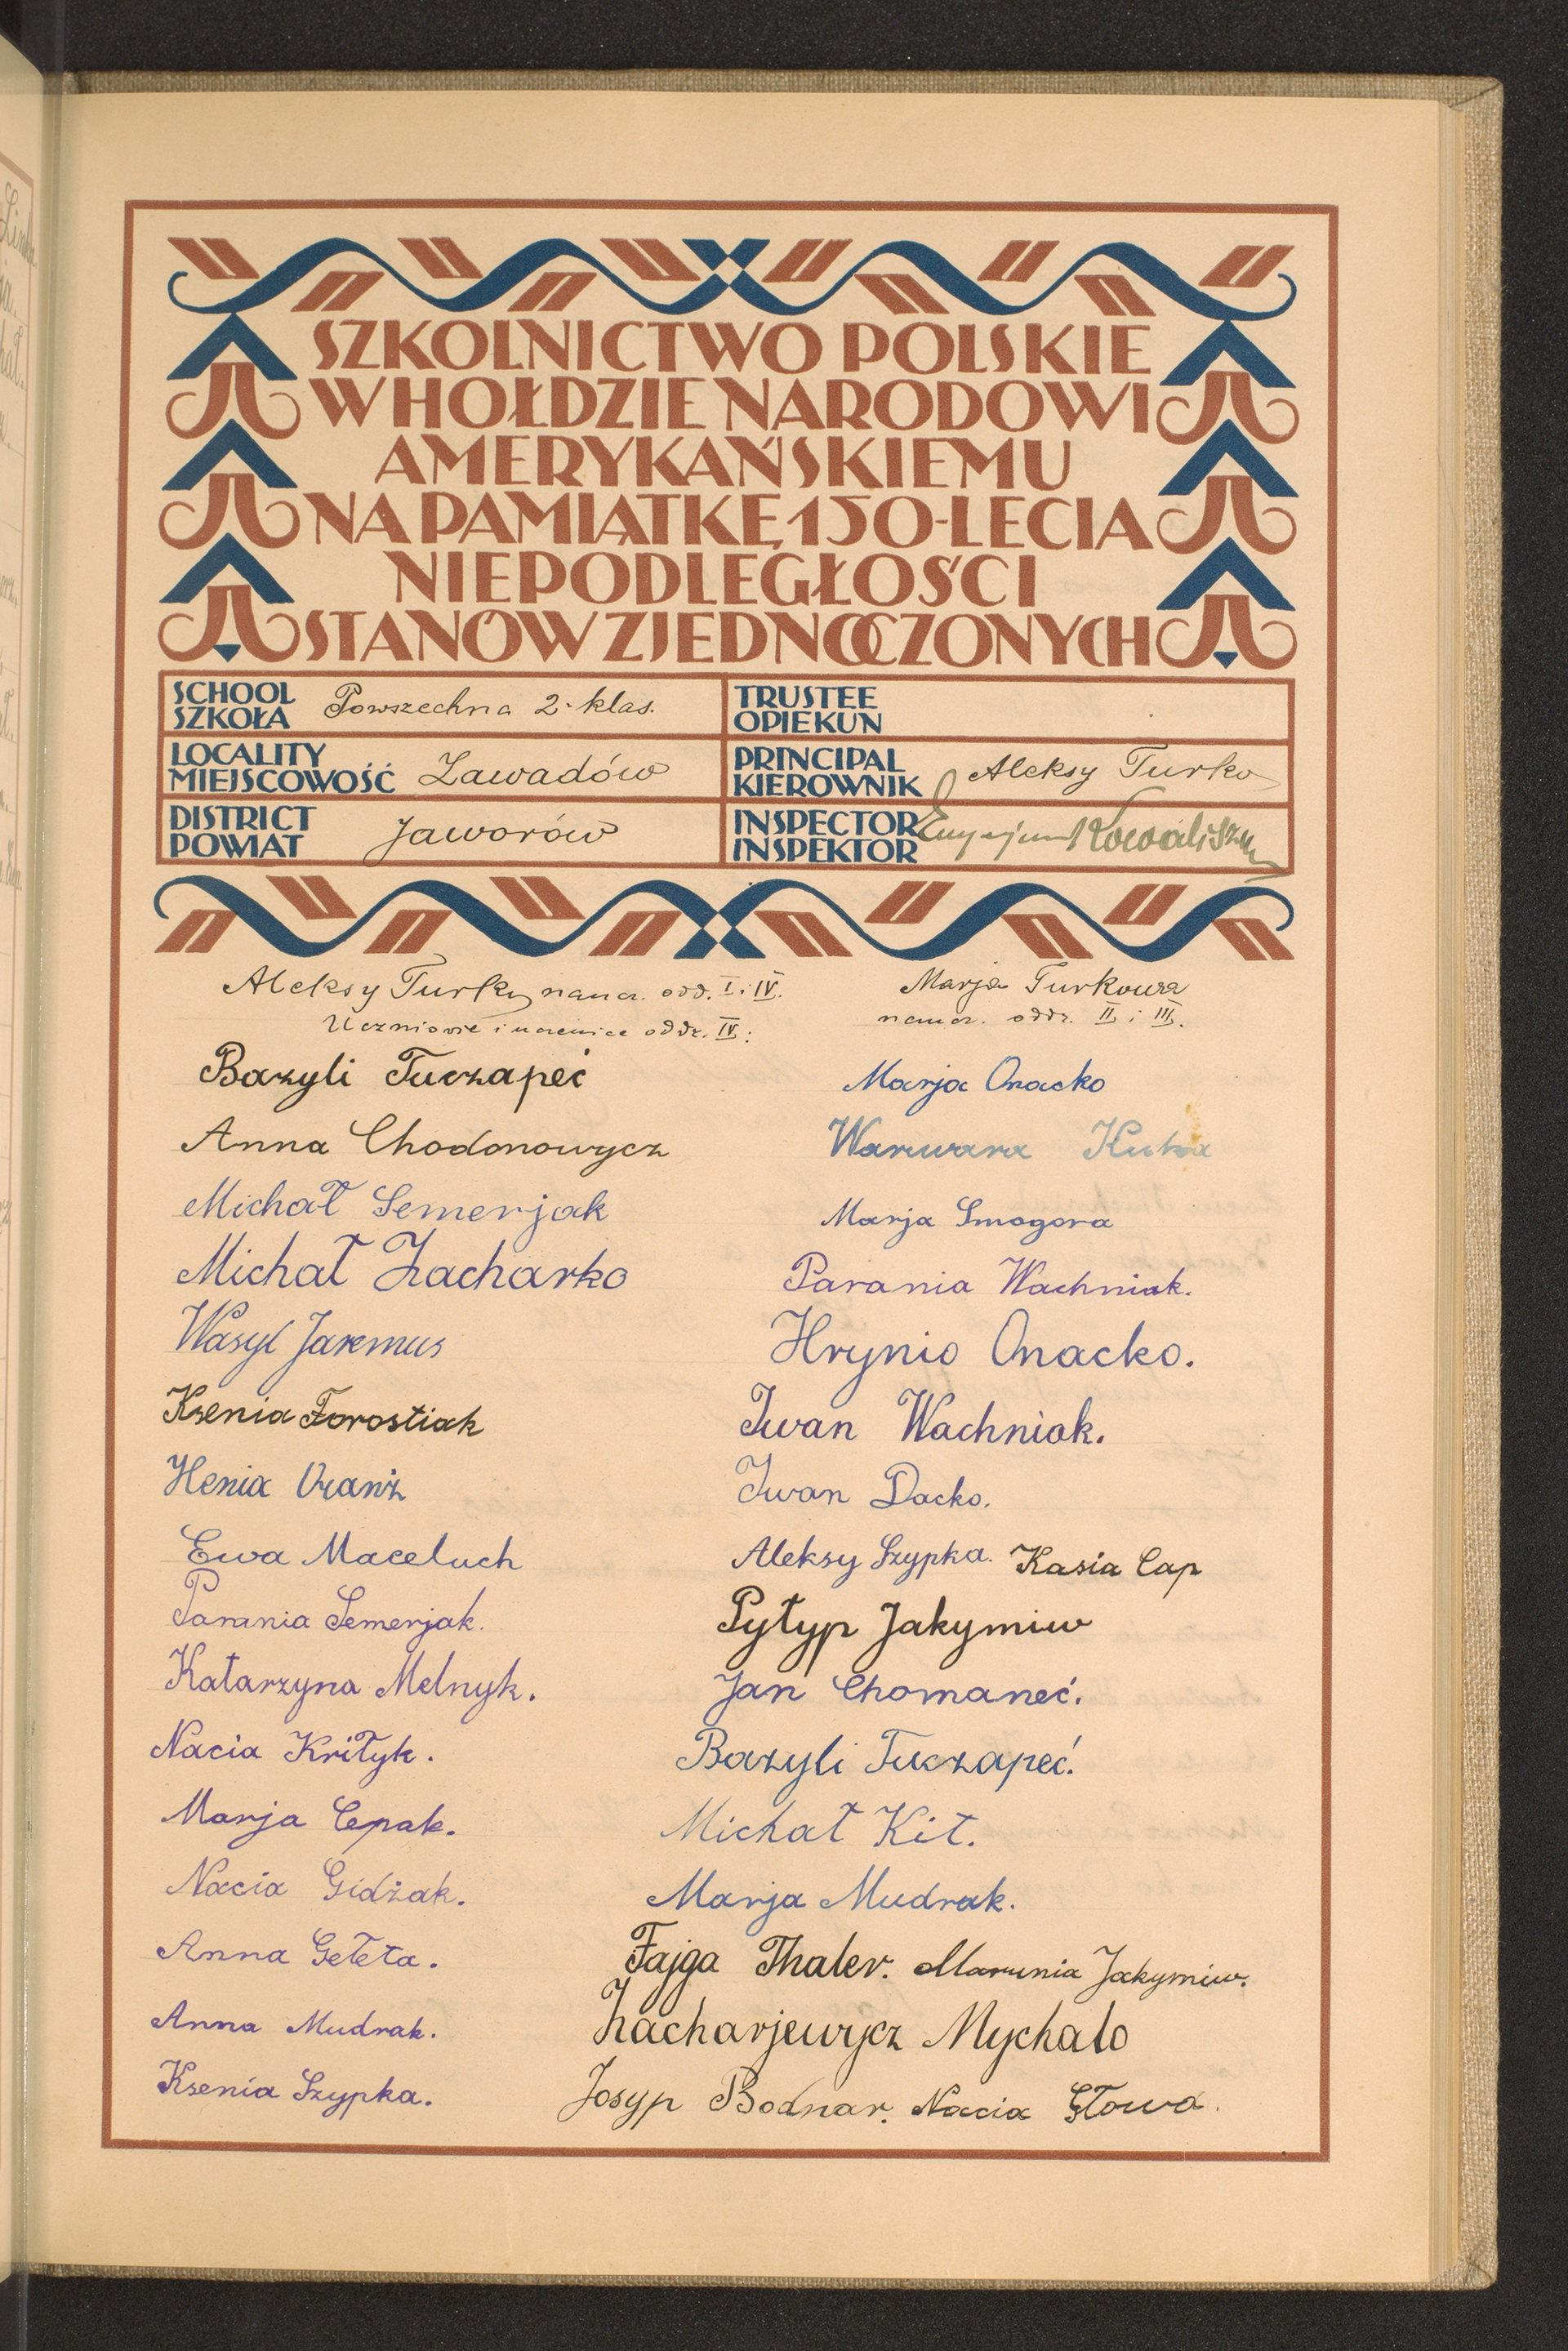 SZKOLNICTWO POLSKIE
W HOŁDZIE NARODOWI
AMERYKAŃSKIEMU
NA PAMIĄTKĘ 150-LECIA
NIEPODLEGŁOŚCI
STANÓW ZJEDNOCZONYCH
SCHOOL
SZKOŁA
Powszechna 2-klas.
TRUSTEE
OPIEKUN
LOCALITY
MIEJSCOWOŚĆ
Zawadów
PRINCIPAL
KIEROWNIK
Aleksy Turko
DISTRICT
POWIAT
Jaworów
INSPECTOR
INSPEKTOR
Aleksy Turko naucz. odd. I i IV.
Uczniowie i uczenice oddz. IV:
Bazyli Tuczapeć
Anna Chodonowycz
Michał Semerjak
Michał Zacharko
Wasyl Jaremus
Ksenia Forostiak
Henia
Ewa Maceluch
Parania Semerjak.
Katarzyna Melnyk.
Nacia Krityk.
Marja Cepak.
Nacia Gidżak.
Anna Geteta.
Anna Mudrak.
Ksenia Szypka.
Marja Turkowa
naucz. oddz. II i III.
Marja Onacko
Warwara
Marja Smogora
Parania Wachniak.
Hrynio Onacko.
Iwan Wachniak.
Iwan Dacko.
Aleksy Szypka. Kasia Cap
Pyłyp Jakymiw
Jan Chomaneć.
Bazyli Tuczapeć.
Michał Kit.
Marja Mudrak.
Fajga Thaler. Marunia Jakymiw.
Zacharjewycz Mychalo
Josyp Bodnar. Nacia Głowa.